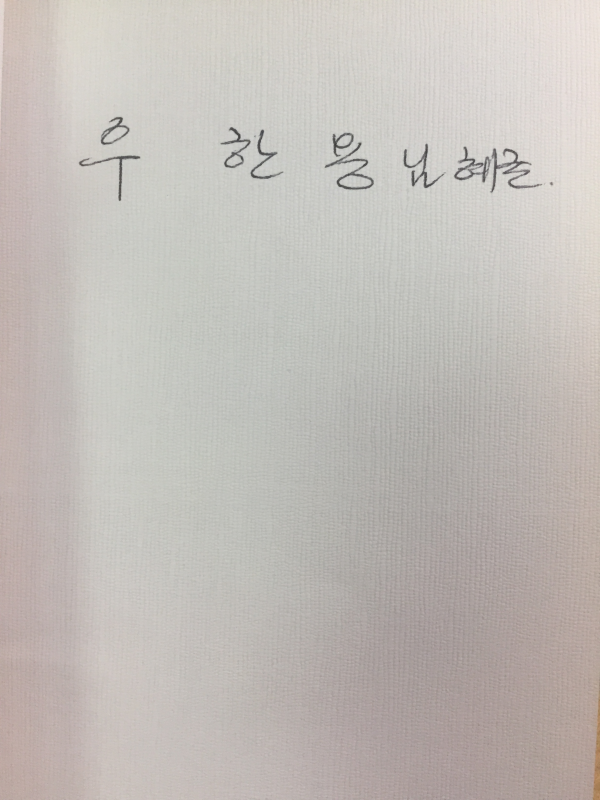 우 한 용 님 혜존.